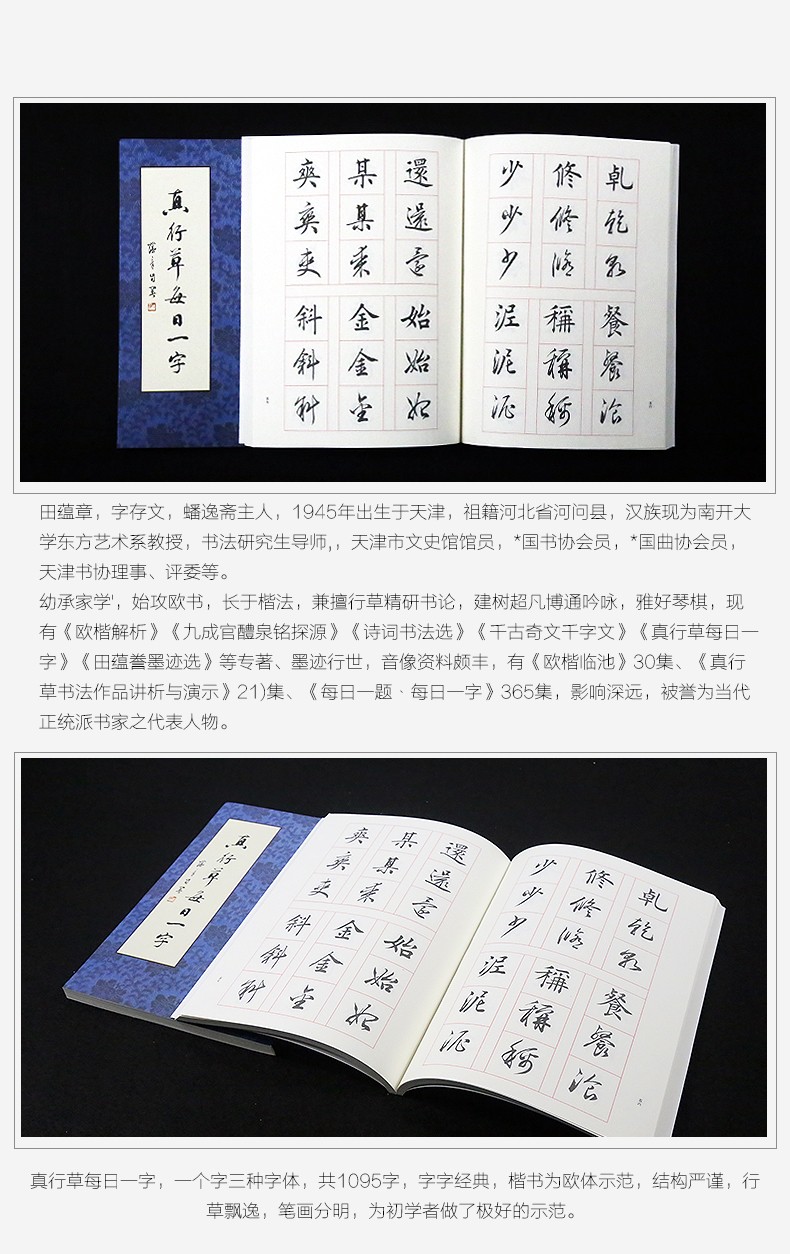 真行草每日一字
乹乾乾
修修修
少少少
餐餐餐
稱稱稱
泥泥泥
還還還
某某某
爽爽爽
始始始
金金金
斜斜斜
田蕴章，字存文，蟠逸斋主人，1945年出生于天津，祖籍河北省河问县，汉族现为南开大
学东方艺术系教授，书法研究生导师,，天津市文史馆馆员，*国书协会员，*国曲协会员，
天津书协理事、评委等。
幼承家学'，始攻欧书，长于楷法，兼擅行草精研书论，建树超凡博通吟咏，雅好琴棋，现
有《欧楷解析》《九成官醴泉铭探源》《诗词书法选》《千古奇文千字文》《真行草每日一
字》《田蕴誊墨迹选》等专著、墨迹行世，音像资料颇丰，有《欧楷临池》30集、《真行
草书法作品讲析与演示》21)集、《每日一题、每日一字》365集，影响深远，被誉为当代
正统派书家之代表人物。
真行草每日一字
乹乾乾
修修修
少少少
餐餐餐
稱稱稱
泥泥泥
還還還
某某某
爽爽爽
始始始
金金金
斜斜斜
真行草每日一字，一个字三种字体，共1095字，字字经典，楷书为欧体示范，结构严谨，行
草飘逸，笔画分明，为初学者做了极好的示范。